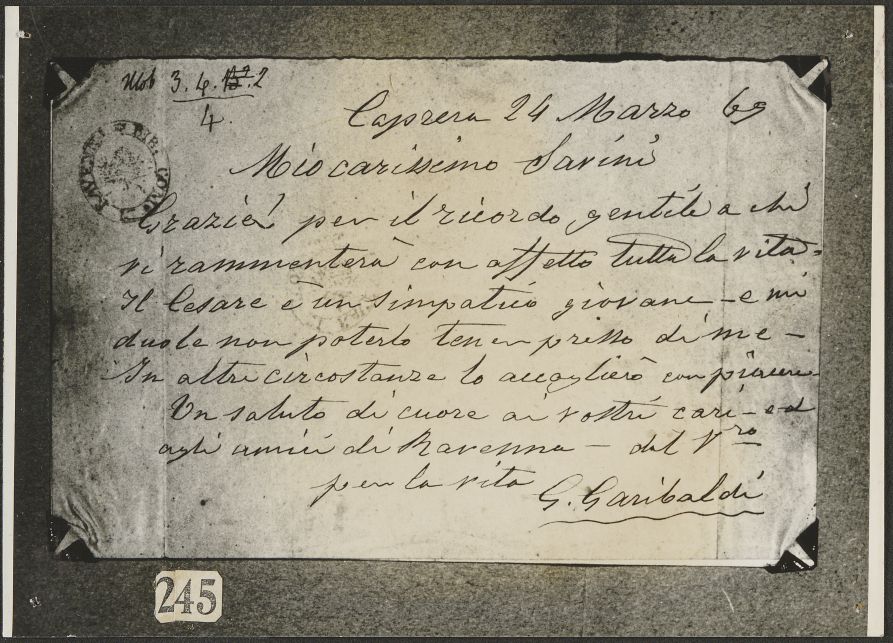 Mob 3. 4. N.º 2
4.
Caprera 24 Marzo 69
Mio carissimo Savini
Grazie per il ricordo gentile a chi
vi rammenterà con affetto tutta la vita =
Il Cesare è un simpatico giovane – e mi
duole non poterlo tener presso di me –
In altre circostanze lo accoglierò con piacere –
Un saluto di cuore ai vostri cari – ed
agli amici di Ravenna – dal V.ro
per la vita
G. Garibaldi
245